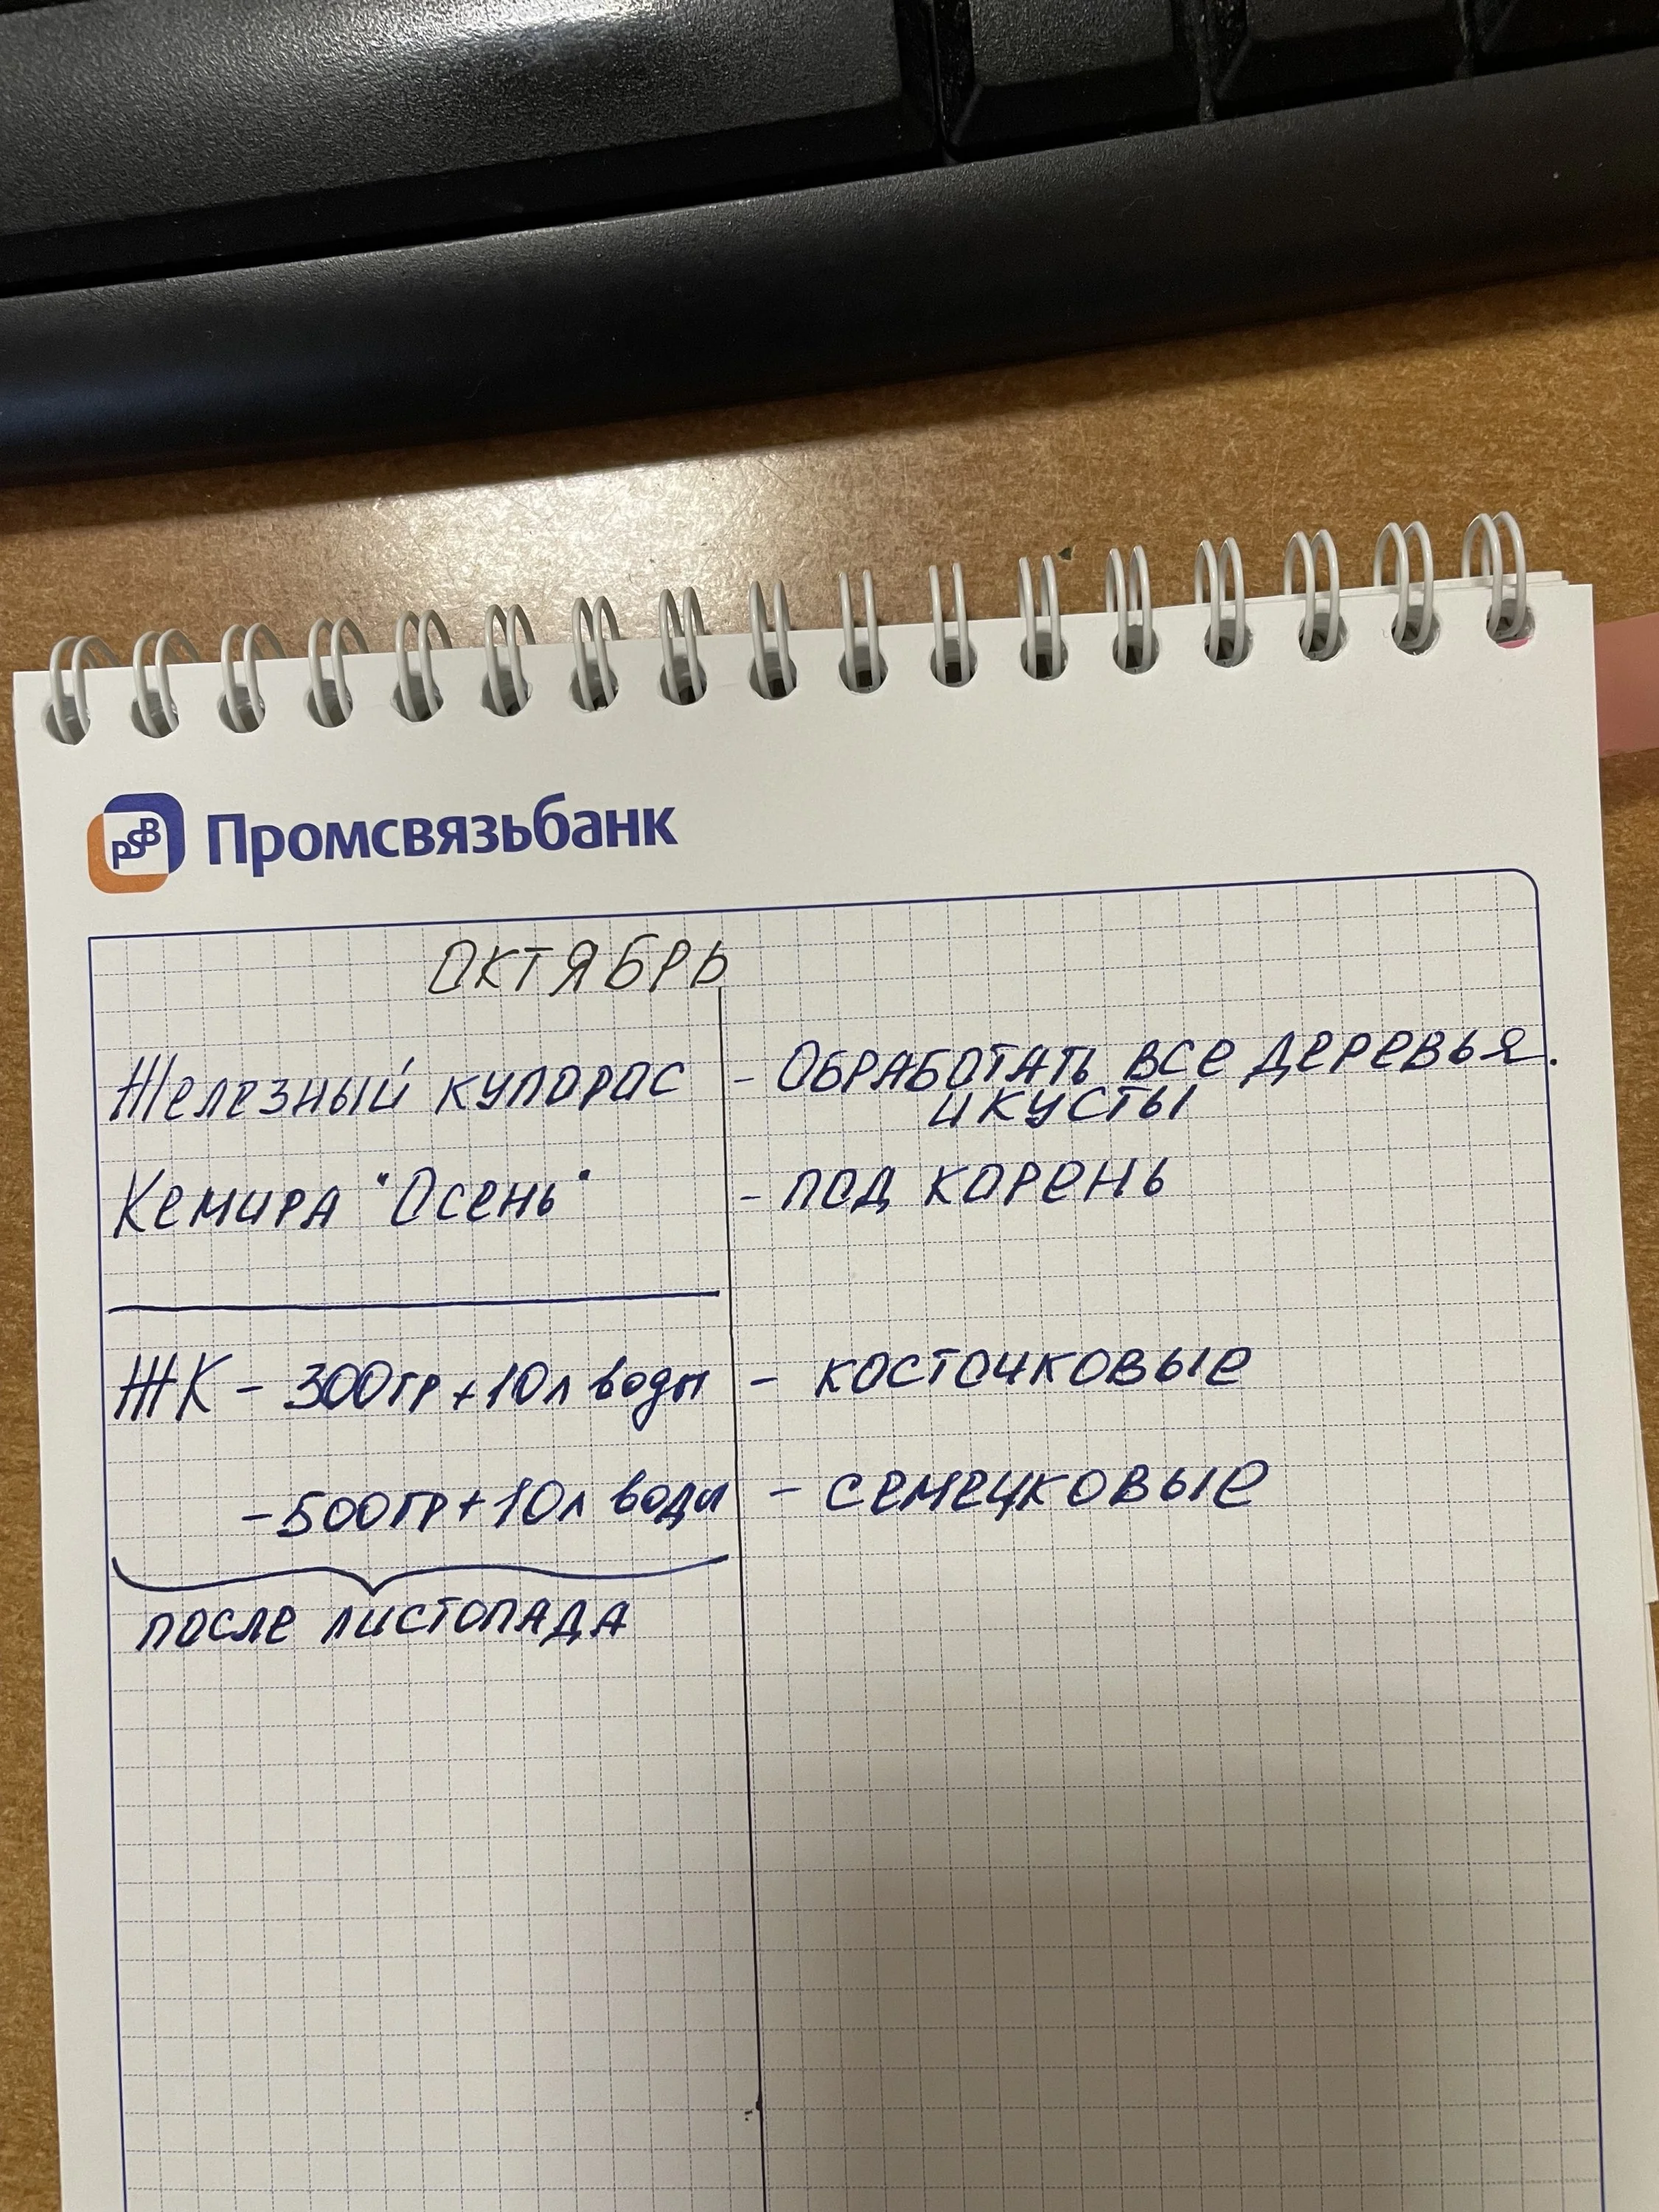 PSB Промсвязьбанк
ОКТЯБРЬ
Железный купорос - Обработать все деревья.
и кусты
Кемира "Осень" - под корень
ЖК - 300гр + 10л воды - косточковые
- 500гр + 10л воды - семечковые
после листопада